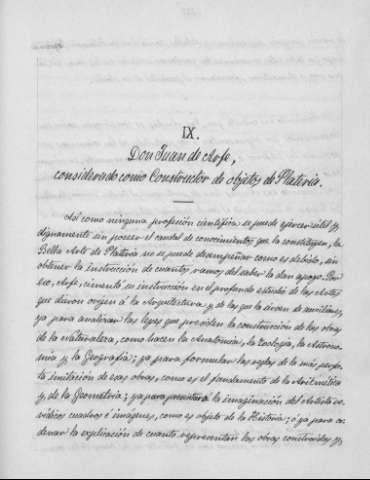 IX.
Don Juan de Arfe,
considerado como Constructor de objetos de Platería.
Así como ninguna profesión científica se puede ejercer útil y
dignamente sin poseer el caudal de conocimientos que la constituyen, la
Bella Arte de Platería no se puede desempeñar como es debido, sin
obtener la instrucción de cuantos ramos del saber la dan apoyo. Por
eso, Arfe, cimentó su instrucción en el profundo estudio de las Artes
que dieron origen á la Arquitectura y de las que la sirven de auxiliares,
ya para analizar las leyes que presiden la construcción de las obras
de la Naturaleza, como hacen la Anatomía, la Zoología, la Astrono-
mía y la Geografía; ya para formular las reglas de la más perfec-
ta imitación de esas obras, como es el fundamento de la Aritmética
y de la Geometría; ya para presentar á la imaginación del Artista ve-
rídicos cuadros é imágenes, como es objeto de la Historia; ó ya para or-
denar la explicación de cuanto representan las obras construidas y